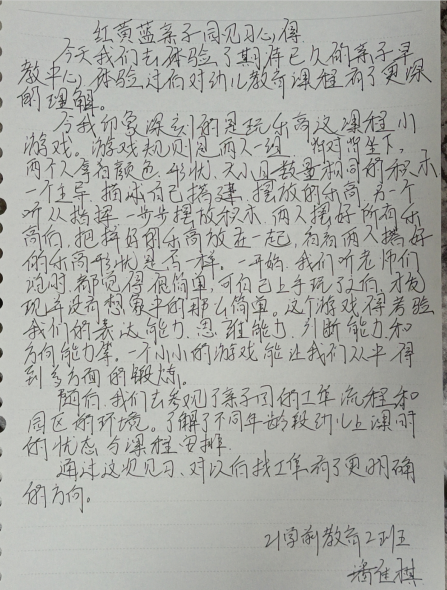 红黄蓝亲子园见习心得
今天我们去体验了期待已久的亲子早
教中心,体验过后对幼儿教育课程有了更深
的理解。
令我印象深刻的是玩乐高这课程小
游戏。游戏规则是两人一组,背对背坐下,
两个人拿着颜色、形状、大小且数量相同的积木
一个主导,描述自己搭建、摆放的乐高,另一个
听从指挥一步步摆放积木,两人摆好所有乐
高后,把拼好的乐高放在一起,看看两人搭好
的乐高形状是否一样。一开始,我们听老师们
说时,都觉得很简单,可自己上手玩了后,才发
现并没有想象中的那么简单。这个游戏得考验
我们的表达能力、思维能力、判断能力和
方向能力等。一个小小的游戏,能让我们从中得
到多方面的锻炼。
随后,我们去参观了亲子园的工作流程和
园区的环境。了解了不同年龄段幼儿上课时
的状态与课程安排。
通过这次见习,对以后找工作有了更明确
的方向。
21学前教育2班
潘佳祺